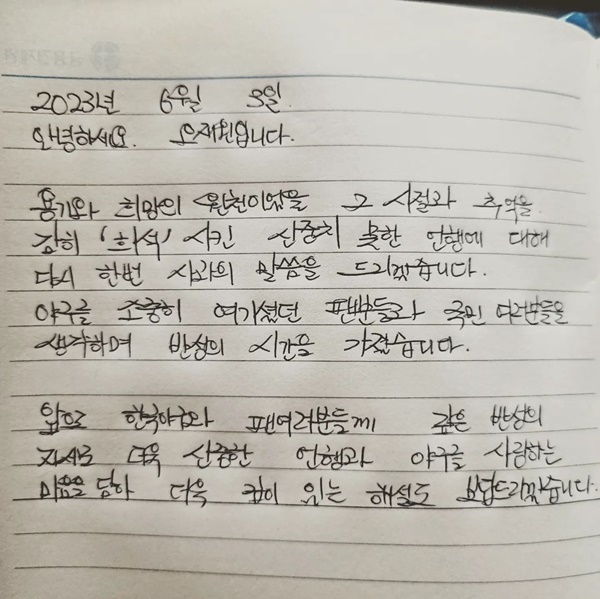 2023년 6월 5일.
안녕하세요. 오재원입니다.
용기와 희망의 원천이었을 그 시절과 추억을
감히 '희석' 시킨 신중치 못한 언행에 대해
다시 한번 사과의 말씀을 드리겠습니다.
야구를 소중히 여기셨던 팬분들과 국민 여러분들을
생각하며 반성의 시간을 가졌습니다.
앞으로 한국야구와 팬여러분들께 깊은 반성의
자세로 더욱 신중한 언행과 야구를 사랑하는
마음을 담아 더욱 깊이 있는 해설로 보답드리겠습니다.